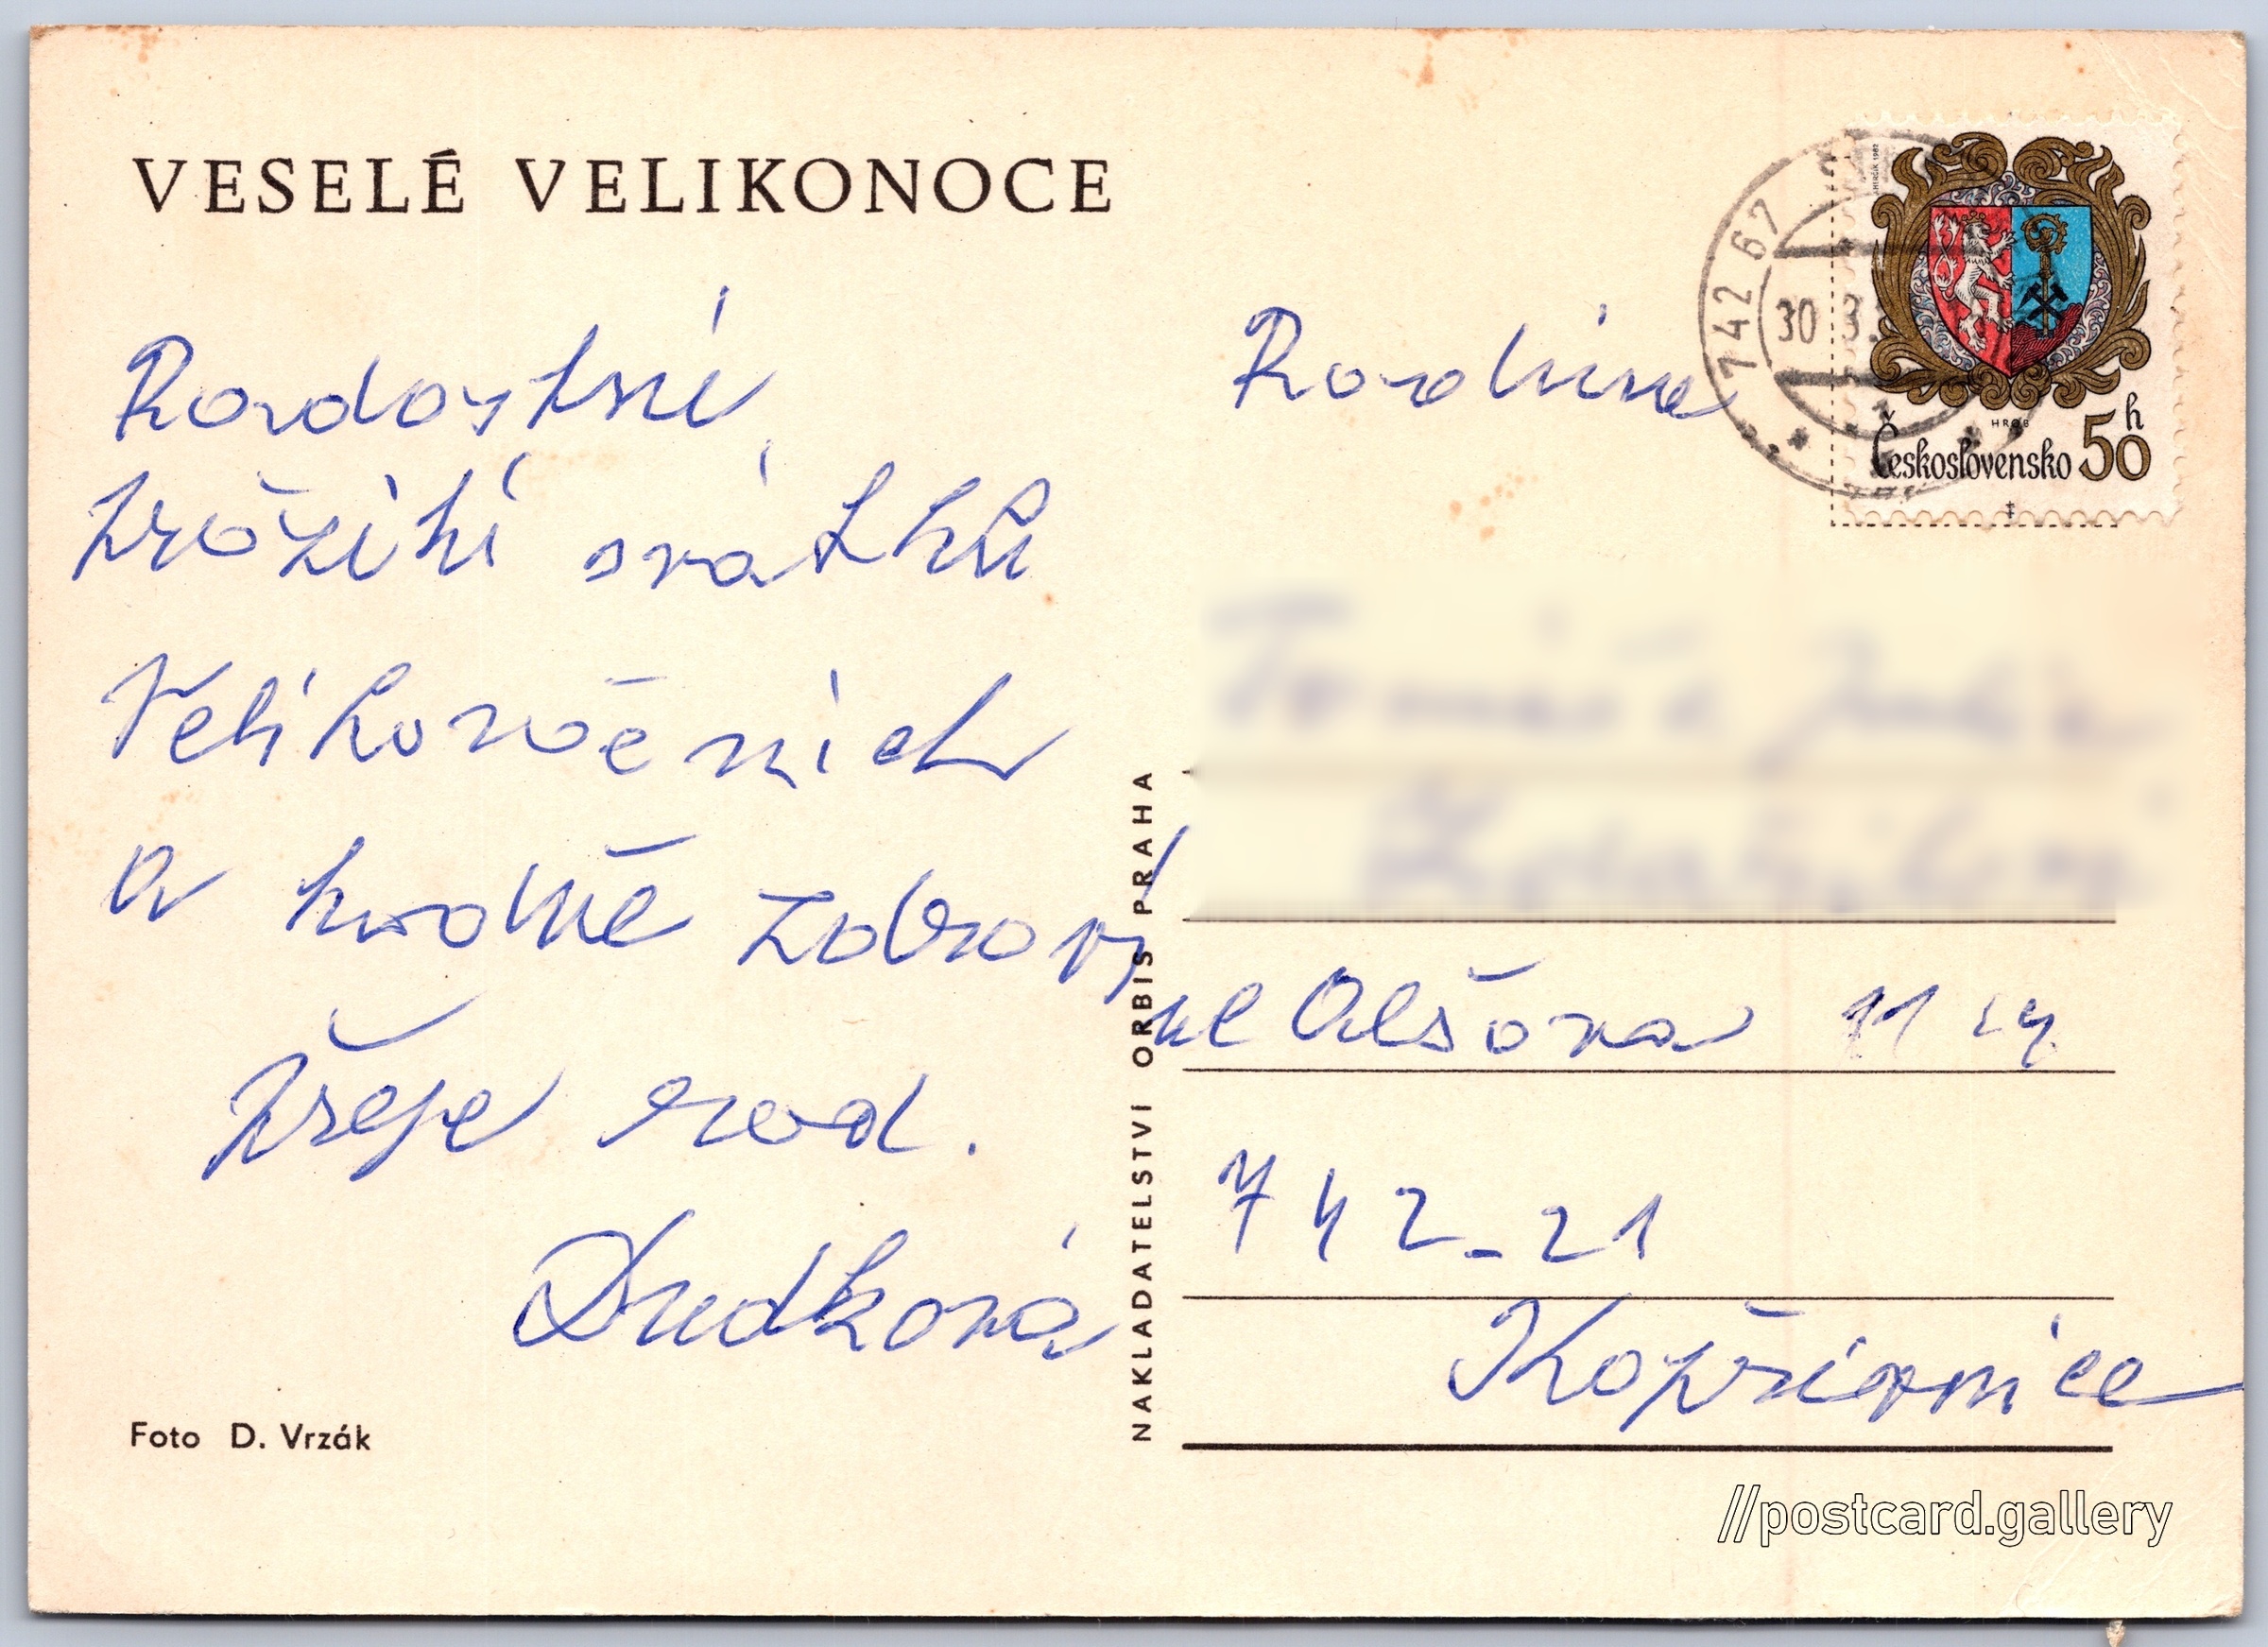 VESELÉ VELIKONOCE
Radostné
prožití svátků
Velikočních
a hodně zdraví
přeje rod.
Dudková
Foto D. Vrzák
NAKLADATELSTVÍ ORBIS PRAHA
742 67
30 3.
HROB
Československo 50 h
Rodina
ul Alšova 11
742-21
Kopřivnice
//postcard.gallery